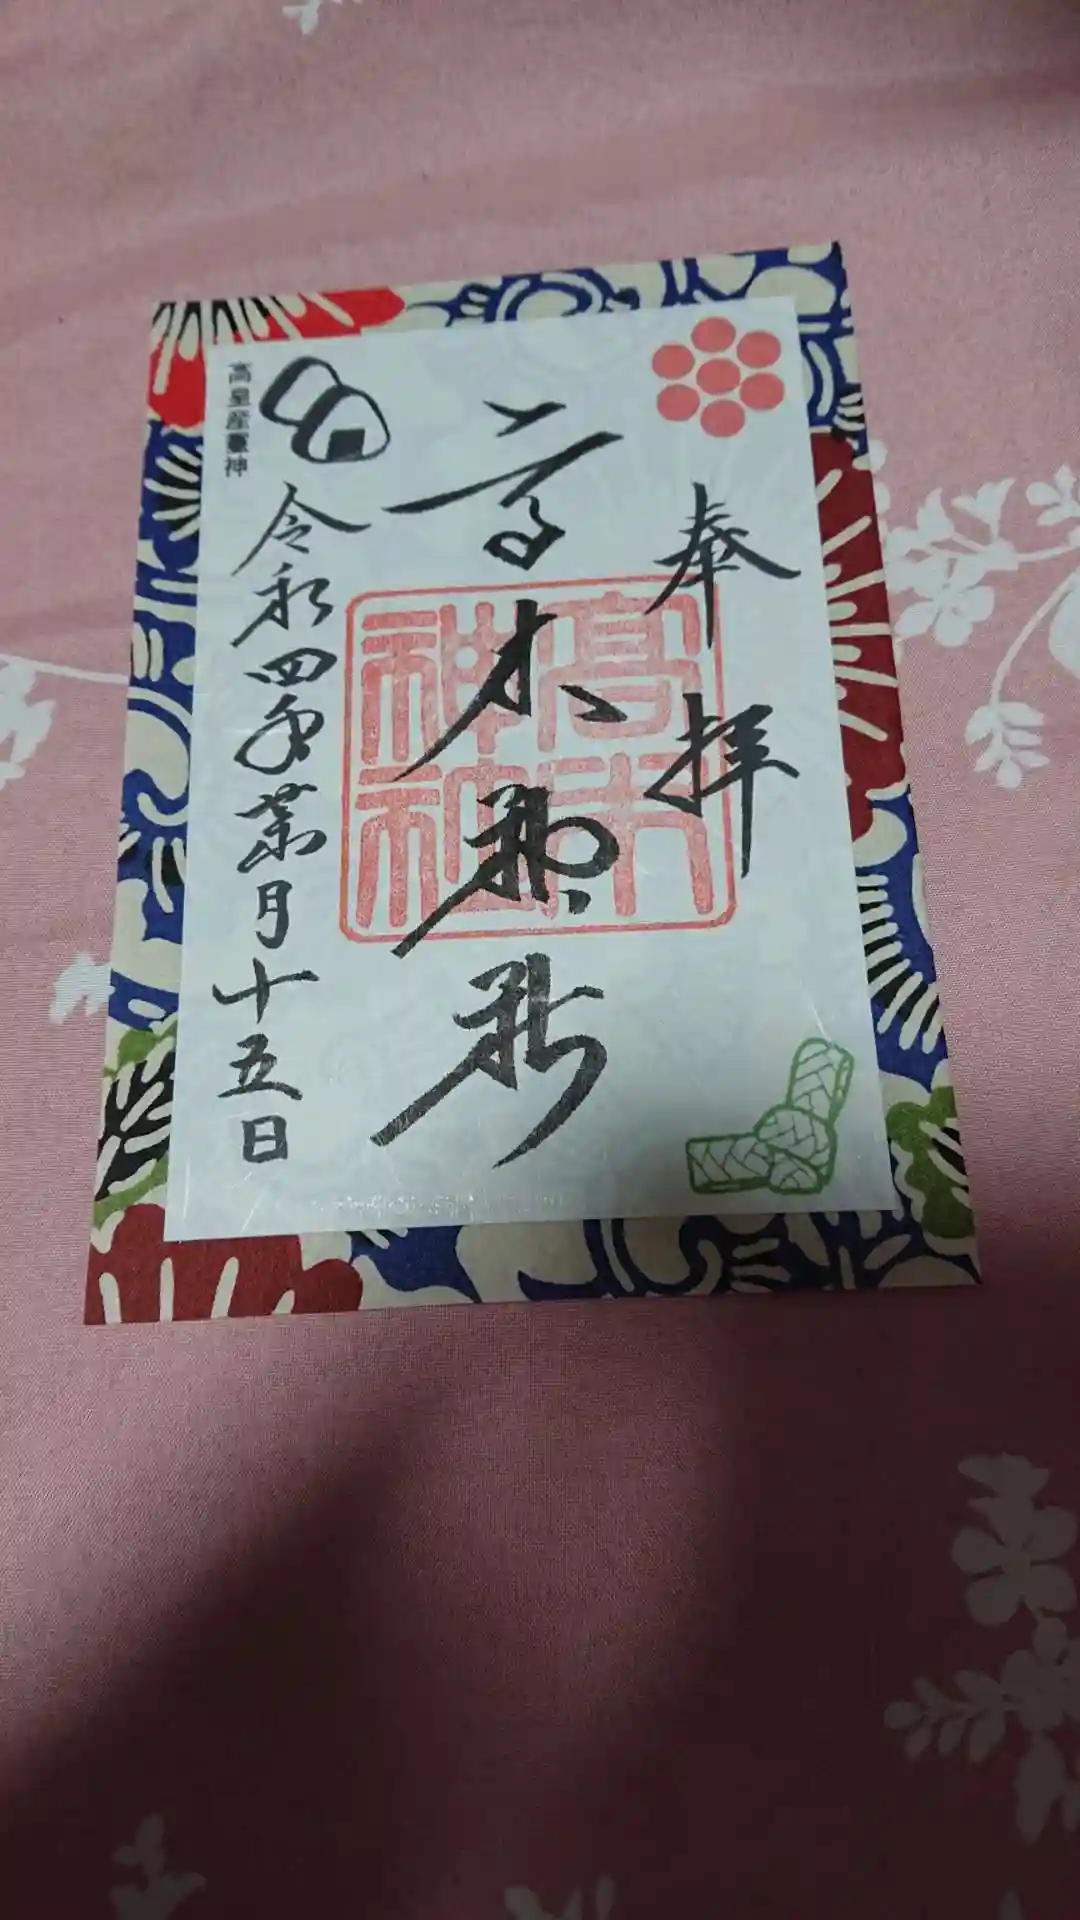 奉拝
高木神社
髙木神社
令和四年葉月十五日
高皇産靈神